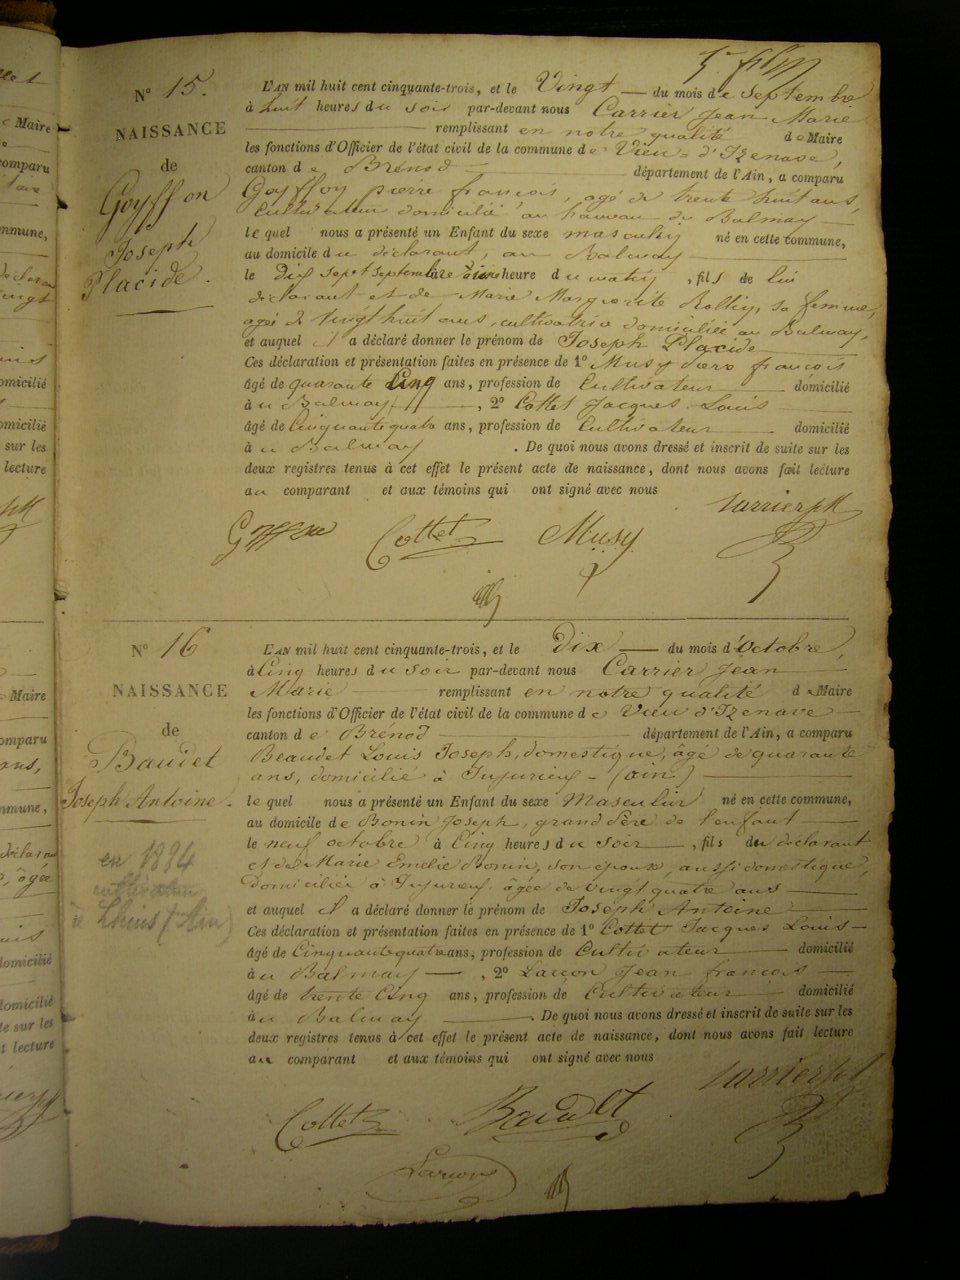 N° 15.
NAISSANCE
de
Goyffon
Joseph
Placide.
L'AN mil huit cent cinquante-trois, et le Vingt du mois de Septembre
à huit heures du soir par-devant nous Carrier Jean Marie
remplissant en notre qualité de Maire
les fonctions d'Officier de l'état civil de la commune de Vieu-d'Izenave,
canton de Brénod département de l'Ain, a comparu
Goyffon pierre françois, agé de trente huit ans,
Cultivateur domicilié au hameau de Balmay
lequel nous a présenté un Enfant du sexe masculin né en cette commune,
au domicile du déclarant, au Balmay
le Dix sept septembre heure du matin, fils de lui
déclarant et de Marie Marguerite Rollin, sa femme,
agée de Vingt huit ans, cultivatrice domiciliée au Balmay,
et auquel il a déclaré donner le prénom de Joseph Placide
Ces déclaration et présentation faites en présence de 1° Musy françois
âgé de quarante Cinq ans, profession de Cultivateur domicilié
à u Balmay, 2° Cottet Jacques Louis
âgé de Cinquante quatre ans, profession de Cultivateur domicilié
à u Balmay. De quoi nous avons dressé et inscrit de suite sur les
deux registres tenus à cet effet le présent acte de naissance, dont nous avons fait lecture
au comparant et aux témoins qui ont signé avec nous
Goyffon Cottet Musy Carrier JM
N° 16
NAISSANCE
de
Baudet
Joseph Antoine.
en 1894
cultivateur
à (Ain)
L'AN mil huit cent cinquante-trois, et le Dix du mois d'Octobre,
à Cinq heures du soir par-devant nous Carrier Jean
Marie remplissant en notre qualité de Maire
les fonctions d'Officier de l'état civil de la commune de Vieu d'Izenave
canton de Brénod département de l'Ain, a comparu
Beaudet Louis Joseph, domestique, âgé de quarante
ans, domicilié à Jujurieux - (ain)
lequel nous a présenté un Enfant du sexe Masculin né en cette commune,
au domicile de Bonin Joseph, grand Père de l'enfant
le neuf octobre à Cinq heures du soir, fils du déclarant
et de Marie Emelie Bonin, son épouse, aussi domestique,
Domiciliée à Jujurieux, âgée de vingt quatre ans
et auquel il a déclaré donner le prénom de Joséph Antoine
Ces déclaration et présentation faites en présence de 1° Cottet Jacques Louis
âgé de Cinquante quatre ans, profession de Cultivateur domicilié
à u Balmay, 2° Larçon Jean françois
âgé de trente Cinq ans, profession de Cultivateur domicilié
à u Balmay. De quoi nous avons dressé et inscrit de suite sur les
deux registres tenus à cet effet le présent acte de naissance, dont nous avons fait lecture
au comparant et aux témoins qui ont signé avec nous
Cottet Baudet Carrier JM
Larçon